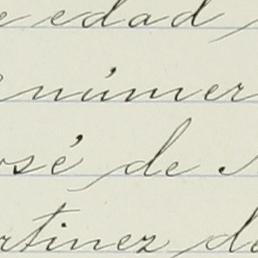 e edad
número
osé de
rtinez de